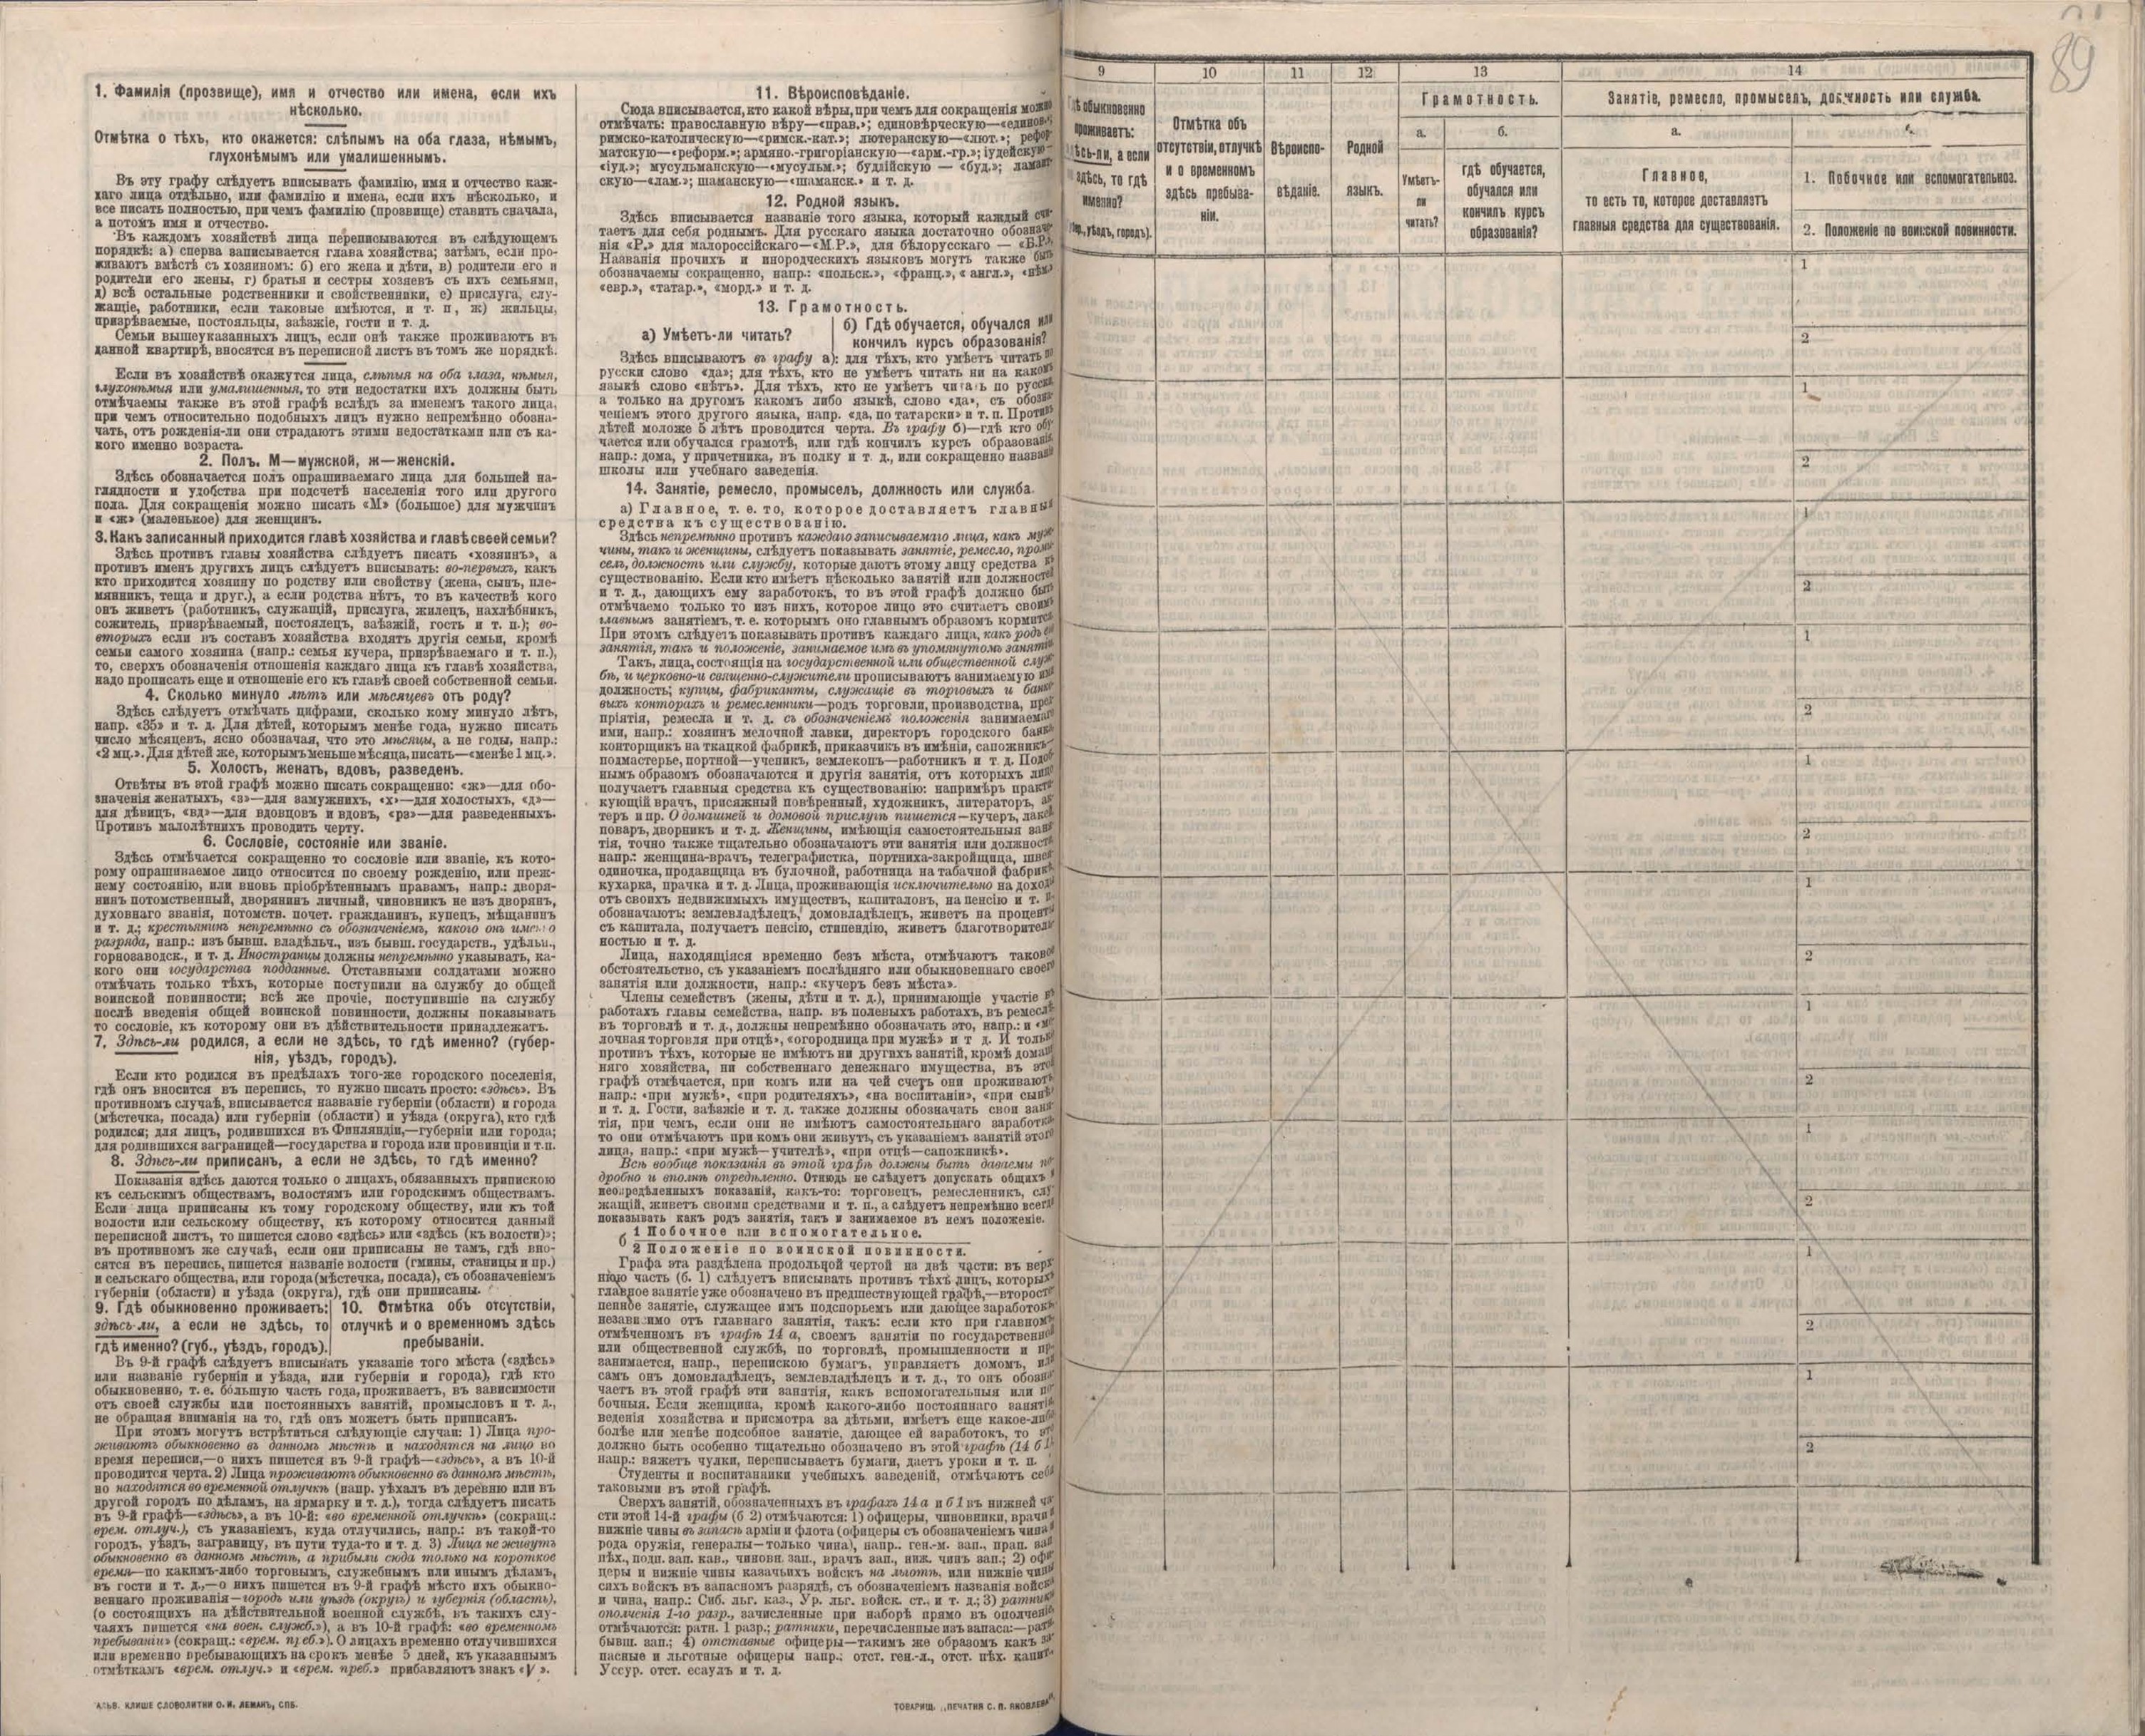 1. Фамилія (прозвище), имя и отчество или имена, если ихъ
нѣсколько.
Отмѣтка о тѣхъ, кто окажется: слѣпымъ на оба глаза, нѣмымъ,
глухонѣмымъ или умалишеннымъ.
Въ эту графу слѣдуетъ вписывать фамилію, имя и отчество каж-
даго лица отдѣльно, или фамилію и имена, если ихъ нѣсколько, и
все писать полностью, при чемъ фамилію (прозвище) ставить сначала,
а потомъ имя и отчество.
Въ каждомъ хозяйствѣ лица переписываются въ слѣдующемъ
порядкѣ: а) сперва записывается глава хозяйства; затѣмъ, если про-
живаютъ вмѣстѣ съ хозяиномъ: б) его жена и дѣти, в) родители его и
родители его жены, г) братья и сестры хозяевъ съ ихъ семьями,
д) всѣ остальные родственники и свойственники, е) прислуга, слу-
жащіе, работники, если таковые имѣются, и т. п, ж) жильцы,
призрѣваемые, постояльцы, заѣзжіе, гости и т. д.
Семьи вышеуказанныхъ лицъ, если онѣ также проживаютъ въ
данной квартирѣ, вносятся въ переписной листъ въ томъ же порядкѣ.
Если въ хозяйствѣ окажутся лица, слѣпыя на оба глаза, нѣмыя,
глухонѣмыя или умалишенныя, то эти недостатки ихъ должны быть
отмѣчаемы также въ этой графѣ вслѣдъ за именемъ такого лица,
при чемъ относительно подобныхъ лицъ нужно непремѣнно обозна-
чать, отъ рожденія-ли они страдаютъ этими недостатками или съ ка-
кого именно возраста.
2. Полъ. М—мужской, ж—женскій.
Здѣсь обозначается полъ опрашиваемаго лица для большей на-
глядности и удобства при подсчетѣ населенія того или другого
пола. Для сокращенія можно писать «М» (большое) для мужчинъ
и «ж» (маленькое) для женщинъ.
3. Какъ записанный приходится главѣ хозяйства и главѣ своей семьи?
Здѣсь противъ главы хозяйства слѣдуетъ писать «хозяинъ», а
противъ именъ другихъ лицъ слѣдуетъ вписывать: во-первыхъ, какъ
кто приходится хозяину по родству или свойству (жена, сынъ, пле-
мянникъ, теща и друг.), а если родства нѣтъ, то въ качествѣ кого
онъ живетъ (работникъ, служащій, прислуга, жилецъ, нахлѣбникъ,
сожитель, призрѣваемый, постоялецъ, заѣзжій, гость и т. п.); во-
вторыхъ если въ составъ хозяйства входятъ другія семьи, кромѣ
семьи самого хозяина (напр.: семья кучера, призрѣваемаго и т. п.),
то, сверхъ обозначенія отношенія каждаго лица къ главѣ хозяйства,
надо прописать еще и отношеніе его къ главѣ своей собственной семьи.
4. Сколько минуло лѣтъ или мѣсяцевъ отъ роду?
Здѣсь слѣдуетъ отмѣчать цифрами, сколько кому минуло лѣтъ,
напр. «35» и т. д. Для дѣтей, которымъ менѣе года, нужно писать
число мѣсяцевъ, ясно обозначая, что это мѣсяцы, а не годы, напр.:
«2 мц.». Для дѣтей же, которымъ меньше мѣсяца, писать—«менѣе 1 мц.».
5. Холостъ, женатъ, вдовъ, разведенъ.
Отвѣты въ этой графѣ можно писать сокращенно: «ж»—для обо-
значенія женатыхъ, «з»—для замужнихъ, «х»—для холостыхъ, «д»—
для дѣвицъ, «вд»—для вдовцовъ и вдовъ, «рз»—для разведенныхъ.
Противъ малолѣтнихъ проводить черту.
6. Сословіе, состояніе или званіе.
Здѣсь отмѣчается сокращенно то сословіе или званіе, къ кото-
рому опрашиваемое лицо относится по своему рожденію, или преж-
нему состоянію, или вновь пріобрѣтеннымъ правамъ, напр.: дворя-
нинъ потомственный, дворянинъ личный, чиновникъ не изъ дворянъ,
духовнаго званія, потомств. почет. гражданинъ, купецъ, мѣщанинъ
и т. д.; крестьянинъ непремѣнно съ обозначеніемъ, какого онъ именно
разряда, напр.: изъ бывш. владѣльч., изъ бывш. государств., удѣльн.,
горнозаводск., и т. д. Иностранцы должны непремѣнно указывать, ка-
кого они государства подданные. Отставными солдатами можно
отмѣчать только тѣхъ, которые поступили на службу до общей
воинской повинности; всѣ же прочіе, поступившіе на службу
послѣ введенія общей воинской повинности, должны показывать
то сословіе, къ которому они въ дѣйствительности принадлежатъ.
7. Здѣсь-ли родился, а если не здѣсь, то гдѣ именно? (губер-
нія, уѣздъ, городъ).
Если кто родился въ предѣлахъ того-же городского поселенія,
гдѣ онъ вносится въ перепись, то нужно писать просто: «здѣсь». Въ
противномъ случаѣ, вписывается названіе губерніи (области) и города
(мѣстечка, посада) или губерніи (области) и уѣзда (округа), кто гдѣ
родился; для лицъ, родившихся въ Финляндіи,—губерніи или города;
для родившихся заграницей—государства и города или провинціи и т.п.
8. Здѣсь-ли приписанъ, а если не здѣсь, то гдѣ именно?
Показанія здѣсь даются только о лицахъ, обязанныхъ припискою
къ сельскимъ обществамъ, волостямъ или городскимъ обществамъ.
Если лица приписаны къ тому городскому обществу, или къ той
волости или сельскому обществу, къ которому относится данный
переписной листъ, то пишется слово «здѣсь» или «здѣсь (къ волости)»;
въ противномъ же случаѣ, если они приписаны не тамъ, гдѣ вно-
сятся въ перепись, пишется названіе волости (гмины, станицы и пр.)
и сельскаго общества, или города (мѣстечка, посада), съ обозначеніемъ
губерніи (области) и уѣзда (округа), гдѣ они приписаны.
9. Гдѣ обыкновенно проживаетъ:
здѣсь-ли, а если не здѣсь, то
гдѣ именно? (губ., уѣздъ, городъ).
10. Отмѣтка объ отсутствіи,
отлучкѣ и о временномъ здѣсь
пребываніи.
Въ 9-й графѣ слѣдуетъ вписывать указаніе того мѣста («здѣсь»
или названіе губерніи и уѣзда, или губерніи и города), гдѣ кто
обыкновенно, т. е. бо́льшую часть года, проживаетъ, въ зависимости
отъ своей службы или постоянныхъ занятій, промысловъ и т. д.,
не обращая вниманія на то, гдѣ онъ можетъ быть приписанъ.
При этомъ могутъ встрѣтиться слѣдующіе случаи: 1) Лица про-
живаютъ обыкновенно въ данномъ мѣстѣ и находятся на лицо во
время переписи,—о нихъ пишется въ 9-й графѣ—«здѣсь», а въ 10-й
проводится черта. 2) Лица проживаютъ обыкновенно въ данномъ мѣстѣ,
но находятся во временной отлучкѣ (напр. уѣхалъ въ деревню или въ
другой городъ по дѣламъ, на ярмарку и т. д.), тогда слѣдуетъ писать
въ 9-й графѣ—«здѣсь», а въ 10-й: «во временной отлучкѣ» (сокращ.:
врем. отлуч.), съ указаніемъ, куда отлучились, напр.: въ такой-то
городъ, уѣздъ, заграницу, въ пути туда-то и т. д. 3) Лица не живутъ
обыкновенно въ данномъ мѣстѣ, а прибыли сюда только на короткое
время—по какимъ-либо торговымъ, служебнымъ или инымъ дѣламъ,
въ гости и т. д.,—о нихъ пишется въ 9-й графѣ мѣсто ихъ обыкно-
веннаго проживанія—городъ или уѣздъ (округъ) и губернія (область),
(о состоящихъ на дѣйствительной военной службѣ, въ такихъ слу-
чаяхъ пишется «на воен. служб.»), а въ 10-й графѣ: «во временномъ
пребываніи» (сокращ.: «врем. преб.»). О лицахъ временно отлучившихся
или временно пребывающихъ на срокъ менѣе 5 дней, къ указаннымъ
отмѣткамъ «врем. отлуч.» и «врем. преб.» прибавляютъ знакъ «V».
КЛИШЕ СЛОВОЛИТНИ О. И. ЛЕМАНЪ, СПБ.
11. Вѣроисповѣданіе.
Сюда вписывается, кто какой вѣры, при чемъ для сокращенія можно
отмѣчать: православную вѣру—«прав.»; единовѣрческую—«единов.»;
римско-католическую—«римск.-кат.»; лютеранскую—«лют.»; рефор-
матскую—«реформ.»; армяно.-григоріанскую—«арм.-гр.»; іудейскую—
«іуд.»; мусульманскую—«мусульм.»; буддійскую — «буд.»; ламаит-
скую—«лам.»; шаманскую—«шаманск.» и т. д.
12. Родной языкъ.
Здѣсь вписывается названіе того языка, который каждый счи-
таетъ для себя роднымъ. Для русскаго языка достаточно обозначе-
нія «Р.» для малороссійскаго—«М.Р.», для бѣлорусскаго — «Б.Р.».
Названія прочихъ и инородческихъ языковъ могутъ также быть
обозначаемы сокращенно, напр.: «польск.», «франц.», « англ.», «нѣм.»
«евр.», «татар.», «морд.» и т. д.
13. Грамотность.
а) Умѣетъ-ли читать?
б) Гдѣ обучается, обучался или
кончилъ курсъ образованія?
Здѣсь вписываютъ въ графу а): для тѣхъ, кто умѣетъ читать по
русски слово «да»; для тѣхъ, кто не умѣетъ читать ни на какомъ
языкѣ слово «нѣтъ». Для тѣхъ, кто не умѣетъ читать по русски,
а только на другомъ какомъ либо языкѣ, слово «да», съ обозна-
ченіемъ этого другого языка, напр. «да, по татарски» и т. п. Противъ
дѣтей моложе 5 лѣтъ проводится черта. Въ графу б)—гдѣ кто обу-
чается или обучался грамотѣ, или гдѣ кончилъ курсъ образованія,
напр.: дома, у причетника, въ полку и т. д., или сокращенно названіе
школы или учебнаго заведенія.
14. Занятіе, ремесло, промыселъ, должность или служба.
а) Главное, т. е. то, которое доставляетъ главныя
средства къ существованію.
Здѣсь непремѣнно противъ каждаго записываемаго лица, какъ муж-
чины, такъ и женщины, слѣдуетъ показывать занятіе, ремесло, промы-
селъ, должность или службу, которые даютъ этому лицу средства къ
существованію. Если кто имѣетъ нѣсколько занятій или должностей
и т. д., дающихъ ему заработокъ, то въ этой графѣ должно быть
отмѣчаемо только то изъ нихъ, которое лицо это считаетъ своимъ
главнымъ занятіемъ, т. е. которымъ оно главнымъ образомъ кормится.
При этомъ слѣдуетъ показывать противъ каждаго лица, какъ родъ его
занятія, такъ и положеніе, занимаемое имъ въ упомянутомъ занятіи.
Такъ, лица, состоящія на государственной или общественной служ-
бѣ, и церковно-и священно-служители прописываютъ занимаемую ими
должность; купцы, фабриканты, служащіе въ торговыхъ и банко-
выхъ конторахъ и ремесленники—родъ торговли, производства, пред-
пріятія, ремесла и т. д. съ обозначеніемъ положенія занимаемаго
ими, напр.: хозяинъ мелочной лавки, директоръ городского банка,
конторщикъ на ткацкой фабрикѣ, приказчикъ въ имѣніи, сапожникъ—
подмастерье, портной—ученикъ, землекопъ—работникъ и т. д. Подоб-
нымъ образомъ обозначаются и другія занятія, отъ которыхъ лицо
получаетъ главныя средства къ существованію: напримѣръ практи-
кующій врачъ, присяжный повѣренный, художникъ, литераторъ, ак-
теръ и пр. О домашней и домовой прислугѣ пишется—кучеръ, лакей,
поваръ, дворникъ и т. д. Женщины, имѣющія самостоятельныя заня-
тія, точно также тщательно обозначаютъ эти занятія или должность,
напр.: женщина-врачъ, телеграфистка, портниха-закройщица, швея
одиночка, продавщица въ булочной, работница на табачной фабрикѣ,
кухарка, прачка и т. д. Лица, проживающія исключительно на доходы
отъ своихъ недвижимыхъ имуществъ, капиталовъ, на пенсію и т. п.
обозначаютъ: землевладѣлецъ, домовладѣлецъ, живетъ на проценты
съ капитала, получаетъ пенсію, стипендію, живетъ благотворитель-
ностью и т. д.
Лица, находящіяся временно безъ мѣста, отмѣчаютъ таковое
обстоятельство, съ указаніемъ послѣдняго или обыкновеннаго своего
занятія или должности, напр.: «кучеръ безъ мѣста».
Члены семействъ (жены, дѣти и т. д.), принимающіе участіе въ
работахъ главы семейства, напр. въ полевыхъ работахъ, въ ремеслѣ
въ торговлѣ и т. д., должны непремѣнно обозначать это, напр.: и «ме-
лочная торговля при отцѣ», «огородница при мужѣ» и т д. И только
противъ тѣхъ, которые не имѣютъ ни другихъ занятій, кромѣ домаш-
няго хозяйства, ни собственнаго денежнаго имущества, въ этой
графѣ отмѣчается, при комъ или на чей счетъ они проживаютъ
напр.: «при мужѣ», «при родителяхъ», «на воспитаніи», «при сынѣ»
и т. д. Гости, заѣзжіе и т. д. также должны обозначать свои заня-
тія, при чемъ, если они не имѣютъ самостоятельнаго заработка,
то они отмѣчаютъ при комъ они живутъ, съ указаніемъ занятій этого
лица, напр.: «при мужѣ—учителѣ», «при отцѣ—сапожникѣ».
Всѣ вообще показанія въ этой графѣ должны быть даваемы по-
дробно и вполнѣ опредѣленно. Отнюдь не слѣдуетъ допускать общихъ
неопредѣленныхъ показаній, какъ-то: торговецъ, ремесленникъ, слу-
жащій, живетъ своими средствами и т. п., а слѣдуетъ непремѣнно всегда
показывать какъ родъ занятія, такъ и занимаемое въ немъ положеніе.
б 1 Побочное или вспомогательное.
2 Положеніе по воинской повинности.
Графа эта раздѣлена продольной чертой на двѣ части: въ верх-
нюю часть (б. 1) слѣдуетъ вписывать противъ тѣхъ лицъ, которыхъ
главное занятіе уже обозначено въ предшествующей графѣ,—второсте-
пенное занятіе, служащее имъ подспорьемъ или дающее заработокъ
независимо отъ главнаго занятія, такъ: если кто при главномъ
отмѣченномъ въ графѣ 14 а, своемъ занятіи по государственной
или общественной службѣ, по торговлѣ, промышленности и пр.
занимается, напр., перепискою бумагъ, управляетъ домомъ, или
самъ онъ домовладѣлецъ, землевладѣлецъ и т. д., то онъ обозна-
чаетъ въ этой графѣ эти занятія, какъ вспомогательныя или по-
бочныя. Если женщина, кромѣ какого-либо постояннаго занятія,
веденія хозяйства и присмотра за дѣтьми, имѣетъ еще какое-либо
болѣе или менѣе подсобное занятіе, дающее ей заработокъ, то это
должно быть особенно тщательно обозначено въ этой графѣ (14 б 1)
напр.: вяжетъ чулки, переписываетъ бумаги, даетъ уроки и т. п.
Студенты и воспитанники учебныхъ заведеній, отмѣчаютъ себя
таковыми въ этой графѣ.
Сверхъ занятій, обозначенныхъ въ графахъ 14 а и б 1 въ нижней ча-
сти этой 14-й графы (б 2) отмѣчаются: 1) офицеры, чиновники, врачи и
нижніе чины въ запасѣ арміи и флота (офицеры съ обозначеніемъ чина и
рода оружія, генералы—только чина), напр.. ген.-м. зап., прап. зап.
пѣх., подп. зап. кав., чиновн. зап., врачъ зап., ниж. чинъ зап.; 2) офи-
церы и нижніе чины казачьихъ войскъ на льготѣ, или нижніе чины
сихъ войскъ въ запасномъ разрядѣ, съ обозначеніемъ названія войска
и чина, напр.: Сиб. льг. каз., Ур. льг. войск. ст., и т. д.; 3) ратники
ополченія 1-го разр., зачисленные при наборѣ прямо въ ополченіе,
отмѣчаются: ратн. 1 разр.; ратники, перечисленные изъ запаса:—рат.
бывш. зап.; 4) отставные офицеры—такимъ же образомъ какъ за-
пасные и льготные офицеры напр.; отст. ген.-л., отст. пѣх. капит.,
Уссур. отст. есаулъ и т. д.
ТОВАРИЩ. „ПЕЧАТНЯ С. П. ЯКОВЛЕВА“
89
9
10
11
12
13
14
обыкновенно
проживаетъ:
а если
здѣсь, то гдѣ
именно?
уѣздъ, городъ).
Отмѣтка объ
отсутствіи, отлучкѣ
и о временномъ
здѣсь пребыва-
ніи.
Вѣроиспо-
вѣданіе.
Родной
языкъ.
Грамотность.
а.
Умѣетъ-
ли
читать?
б.
гдѣ обучается,
обучался или
кончилъ курсъ
образованія?
Занятіе, ремесло, промыселъ, должность или служба.
а.
Главное,
то есть то, которое доставляетъ
главныя средства для существованія.
1. Побочное или вспомогательное.
2. Положеніе по воинской повинности.
1
2
1
2
1
2
1
2
1
2
1
2
1
2
1
2
1
2
1
2